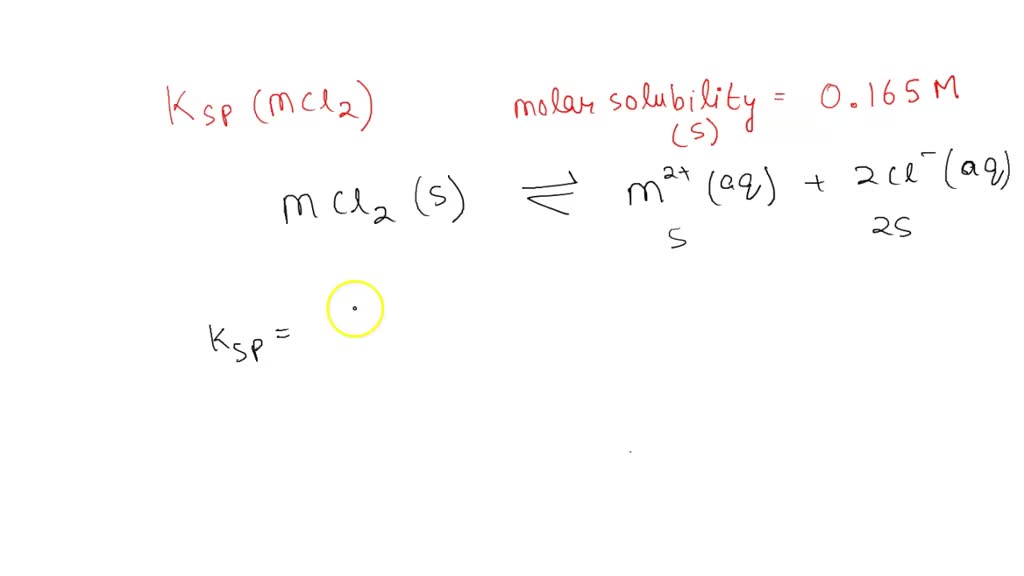 Ksp (mCl₂) molar solubility = 0.165 M
(s)
mCl₂ (s) ⇌ m²⁺ (aq) + 2Cl⁻ (aq)
s 2s
Ksp =